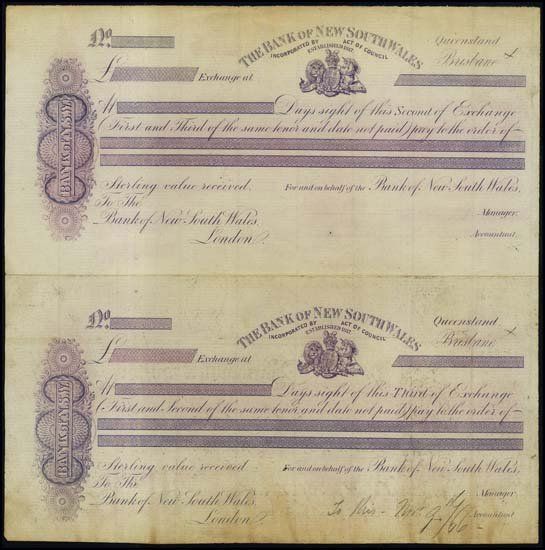 No.
THE BANK OF NEW SOUTH WALES
INCORPORATED BY ACT OF COUNCIL
ESTABLISHED 1817.
Queensland
Brisbane
£ Exchange at
At Days sight of this Second of Exchange
(First and Third of the same tenor and date not paid) pay to the order of
BANK of N.S.W.
Sterling value received. For and on behalf of the Bank of New South Wales,
To The Manager.
Bank of New South Wales,
London. Accountant.
No.
THE BANK OF NEW SOUTH WALES
INCORPORATED BY ACT OF COUNCIL
ESTABLISHED 1817.
Queensland
Brisbane
£ Exchange at
At Days sight of this Third of Exchange
(First and Second of the same tenor and date not paid) pay to the order of
BANK of N.S.W.
Sterling value received For and on behalf of the Bank of New South Wales,
To The Manager
Bank of New South Wales,
London. Accountant.